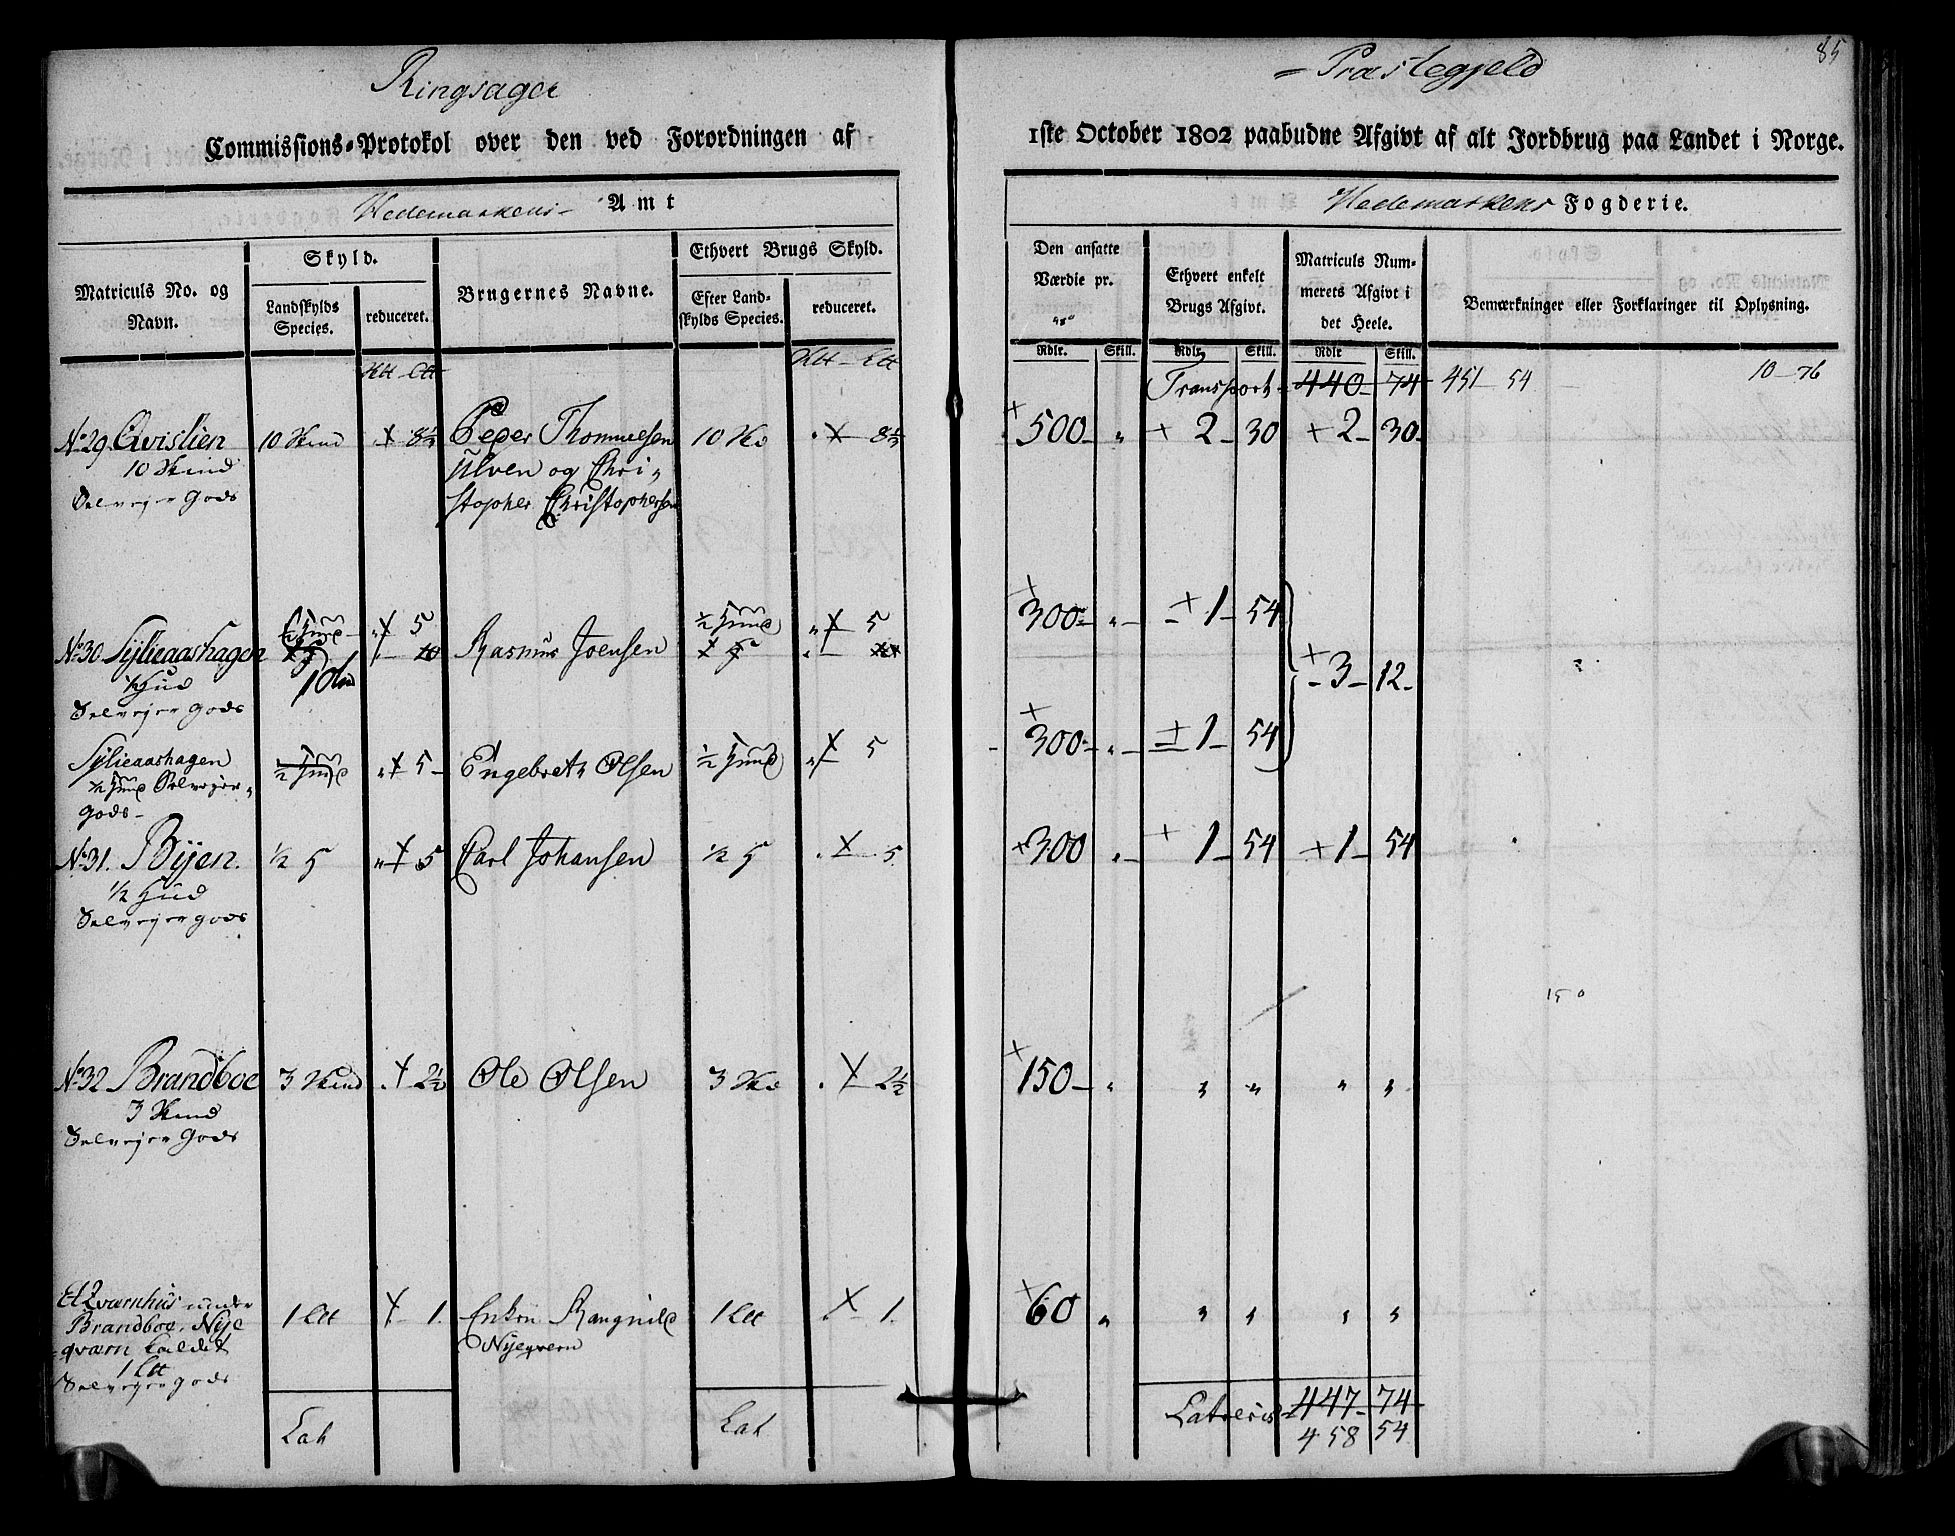 85
Ringsager = Præstegjeld
Commissions-Protokol over den ved Forordningen af 1ste October 1802 paabudne Afgivt af alt Jordbrug paa Landet i Norge.
Hedemarkens Amt
Hedemarkens Fogderie.
Matriculs No. og Navn.
Skyld.
Landskylds Species.
reduceret.
Brugernes Navne.
Ethvert Brugs Skyld.
Efter Landskylds Species.
reduceret.
Den ansatte Værdie pr.
Ethvert enkelt Brugs Afgivt.
Matriculs Nummerets Afgivt i det Heele.
Bemærkninger eller Forklaringer til Oplysning.
Rdlr. Skill. Rdlr. Skill. Rdlr Skill.
Transport 440 74 451 54 10-76
No 29 Qvislien 10 Skind 8½ Peder Thommesen 10 Sk 8½ 500 " 2 30 2 30
10 Skind Ulven og Chri-
Selvejer Gods stopher Christophersen
No 30 Sylieaashagen ½ Hud 5 Rasmus Joensen ½ Hud 5 300 " 1 54
½ Hud
Selvejer Gods 3 12
Sylieaashagen ½ Hud 5 Engebret Olsen ½ Hud 5 300 " 1 54
½ Hud Selvejer
gods
No 31. Byen. ½ H 5 Carl Johansen ½ H 5 300 " 1 54 1 54
½ Hud
Selvejer gods
150
No 32 Brandboe 3 Skind 2½ Ole Olsen 3 Sk 2½ 150 " " " " "
3 Skind
Selvejer Gods
Et Qværnhus under 1 Ltt 1. Enken Rangnild 1 Ltt 1. 60 " " " " "
Brandboe. Nye Nyeqvern
qværn kaldet
1 Ltt
Selvejer gods
Lat Lat Lateris 447 74
458 54